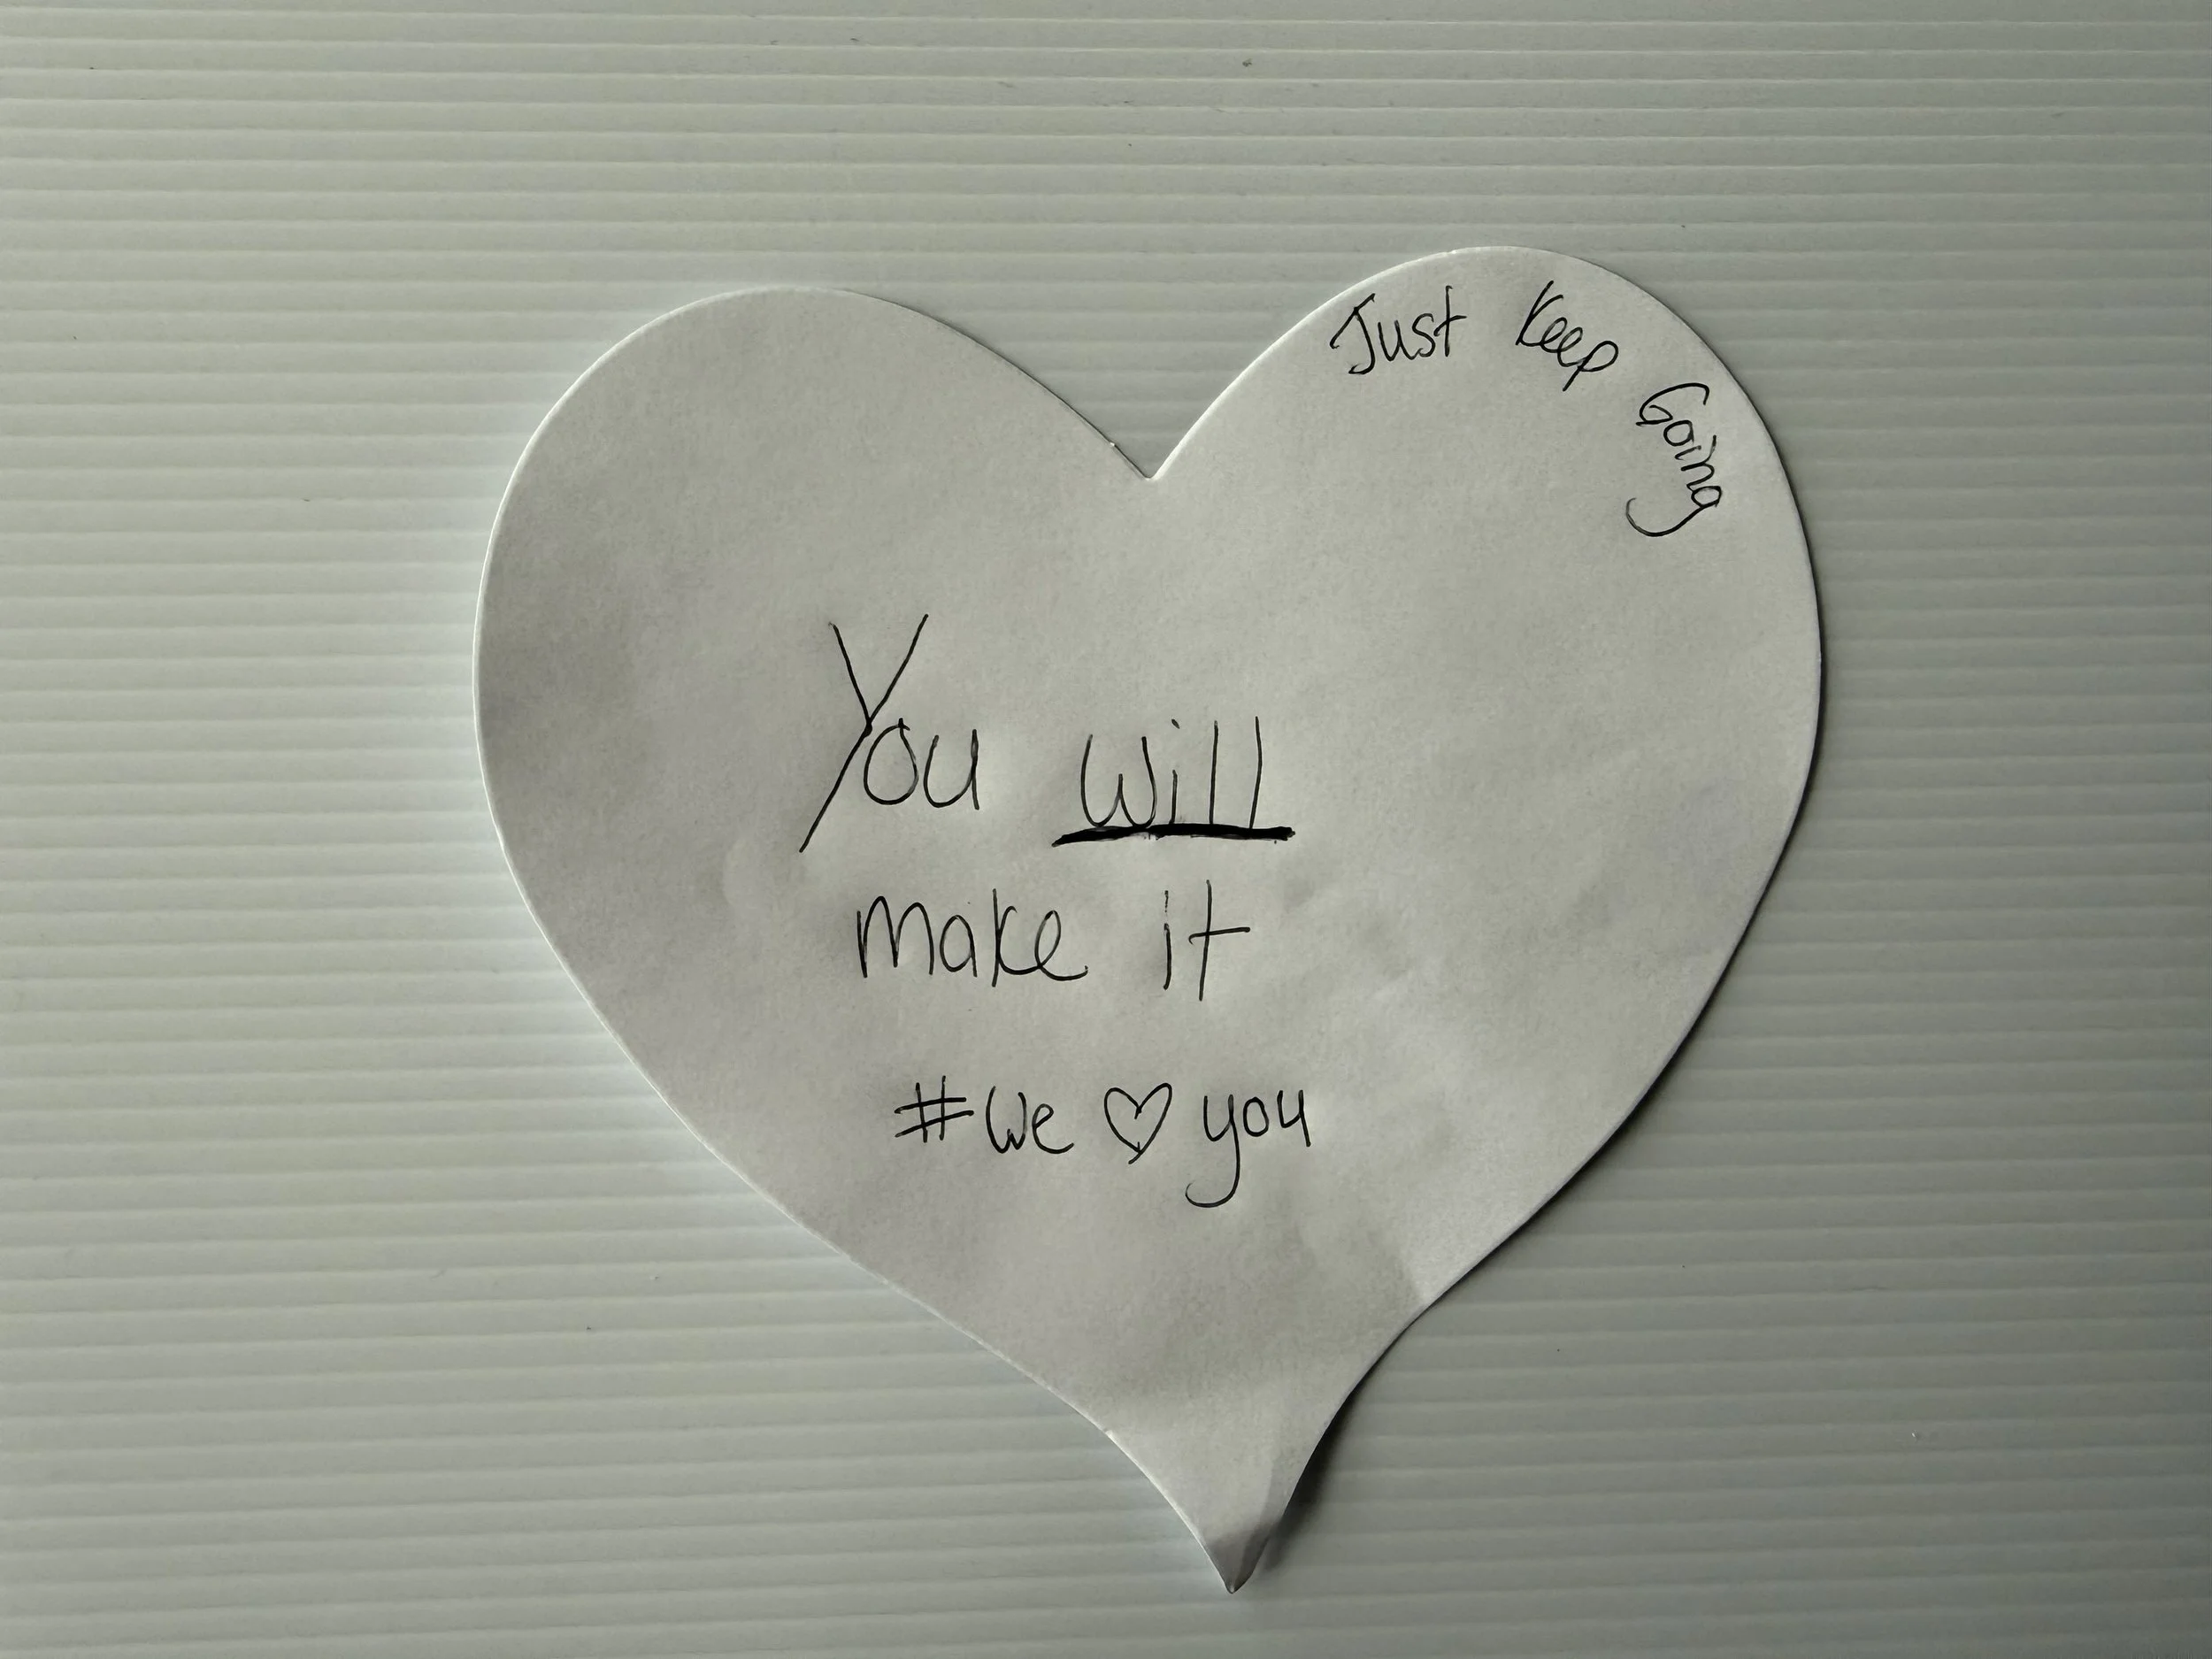 Just Keep Going
You will
make it
#we ♡ you